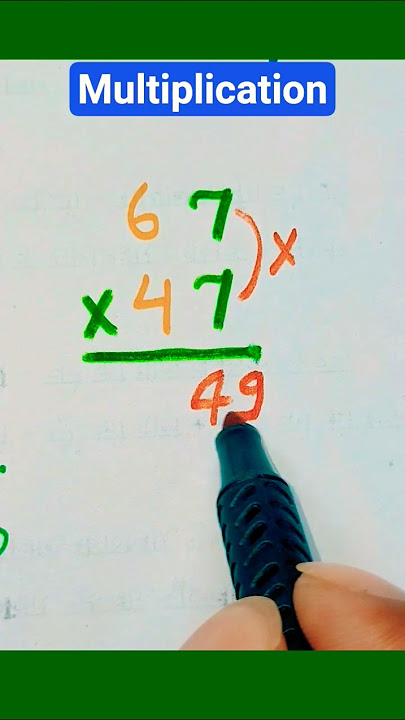 Multiplication
67
x 47
x
49